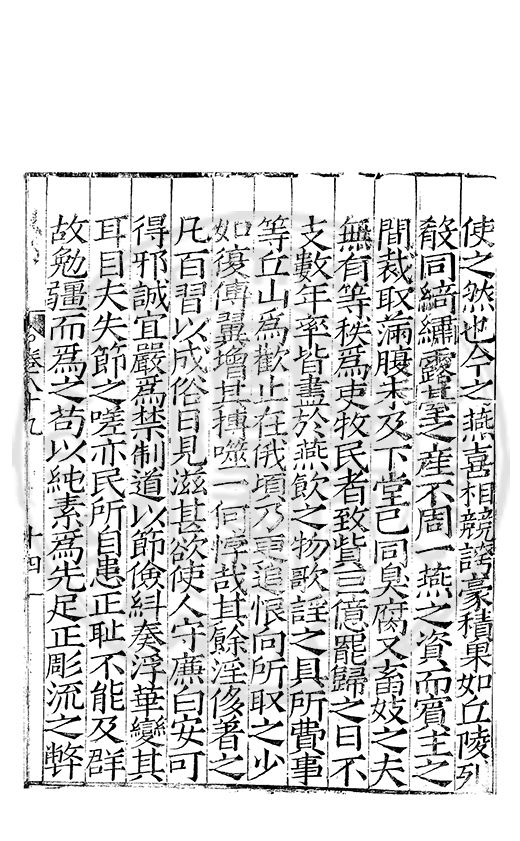 使之然也今之燕喜相競誇豪積果如丘陵列
殽同綺繡露臺之産不周一燕之資而賓主之
間裁取滿腹未及下堂已同臭腐又畜妓之夫
無有等秩爲吏牧民者致貲巨億罷歸之日不
支數年率皆盡於燕飲之物歌謡之具所費事
等丘山爲歡止在俄頃乃更追恨向所取之少
如復傅翼增其搏噬一何悖哉其餘淫侈著之
凡百習以成俗日見滋甚欲使人守廉白安可
得邪誠宜嚴爲禁制道以節儉糾奏浮華變其
耳目夫失節之嗟亦民所自患正耻不能及群
故勉彊而爲之苟以純素爲先足正彫流之弊
卷八十九
十四